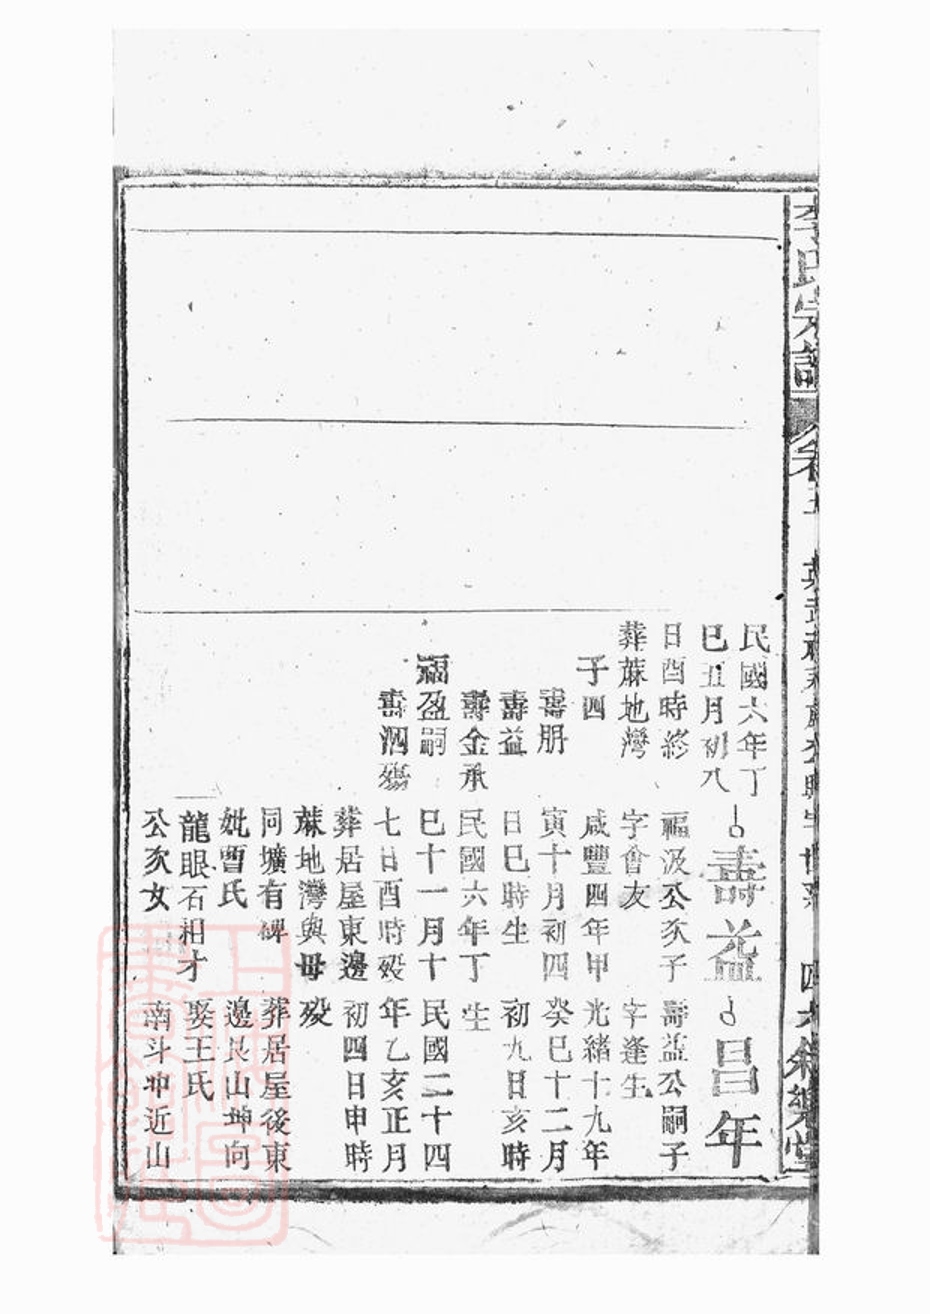 李氏宗譜
卷五
民國六年丁
巳五月初八
日酉時終
葬蔴地灣
子四
壽朋
壽益
壽金承
福盈嗣
壽泗殤
壽益
福汲公次子
字會友
咸豐四年甲
寅十月初四
日巳時生
民國六年丁
巳十一月十
七日酉時歿
葬居屋東邊
蔴地灣與母
同壙有碑
妣曹氏
龍眼石祖才
公次女
昌年
壽益公嗣子
字逢生
光緒十九年
癸巳十二月
初九日亥時
生
民國二十四
年乙亥正月
初四日申時
歿
葬居屋後東
邊艮山坤向
娶王氏
南斗冲近山